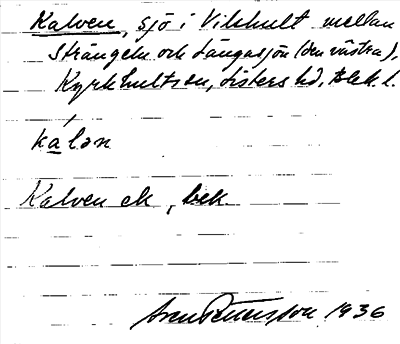 Kalven, sjö i Vilshult mellan
Strängeln och Långasjön (den västra),
Kyrkhults sn, Listers hd, Blek. l.
kalən
Kalven ek, bek.
Sven Benson 1936